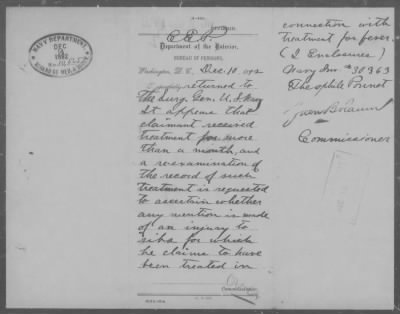 NAVY DEPARTMENT
DEC
1892
BUREAU OF MED. & SURG.
Division
Department of the Interior,
BUREAU OF PENSIONS,
Washington, D. C., Dec 10, 1892
Respectfully returned to
the Surg. Gen. U.S. Navy
It appears that
claimant received
treatment for more
than a month, and
a re-examination of
the record of such
treatment is requested
to ascertain whether
any mention is made
of an injury to
ribs for which
he claims to have
been treated in
Commissioner.
connection with
treatment for fever
(2 Enclosures)
Navy Inv. # 30363
Theophile Ponnet
Green B Raum
Commissioner